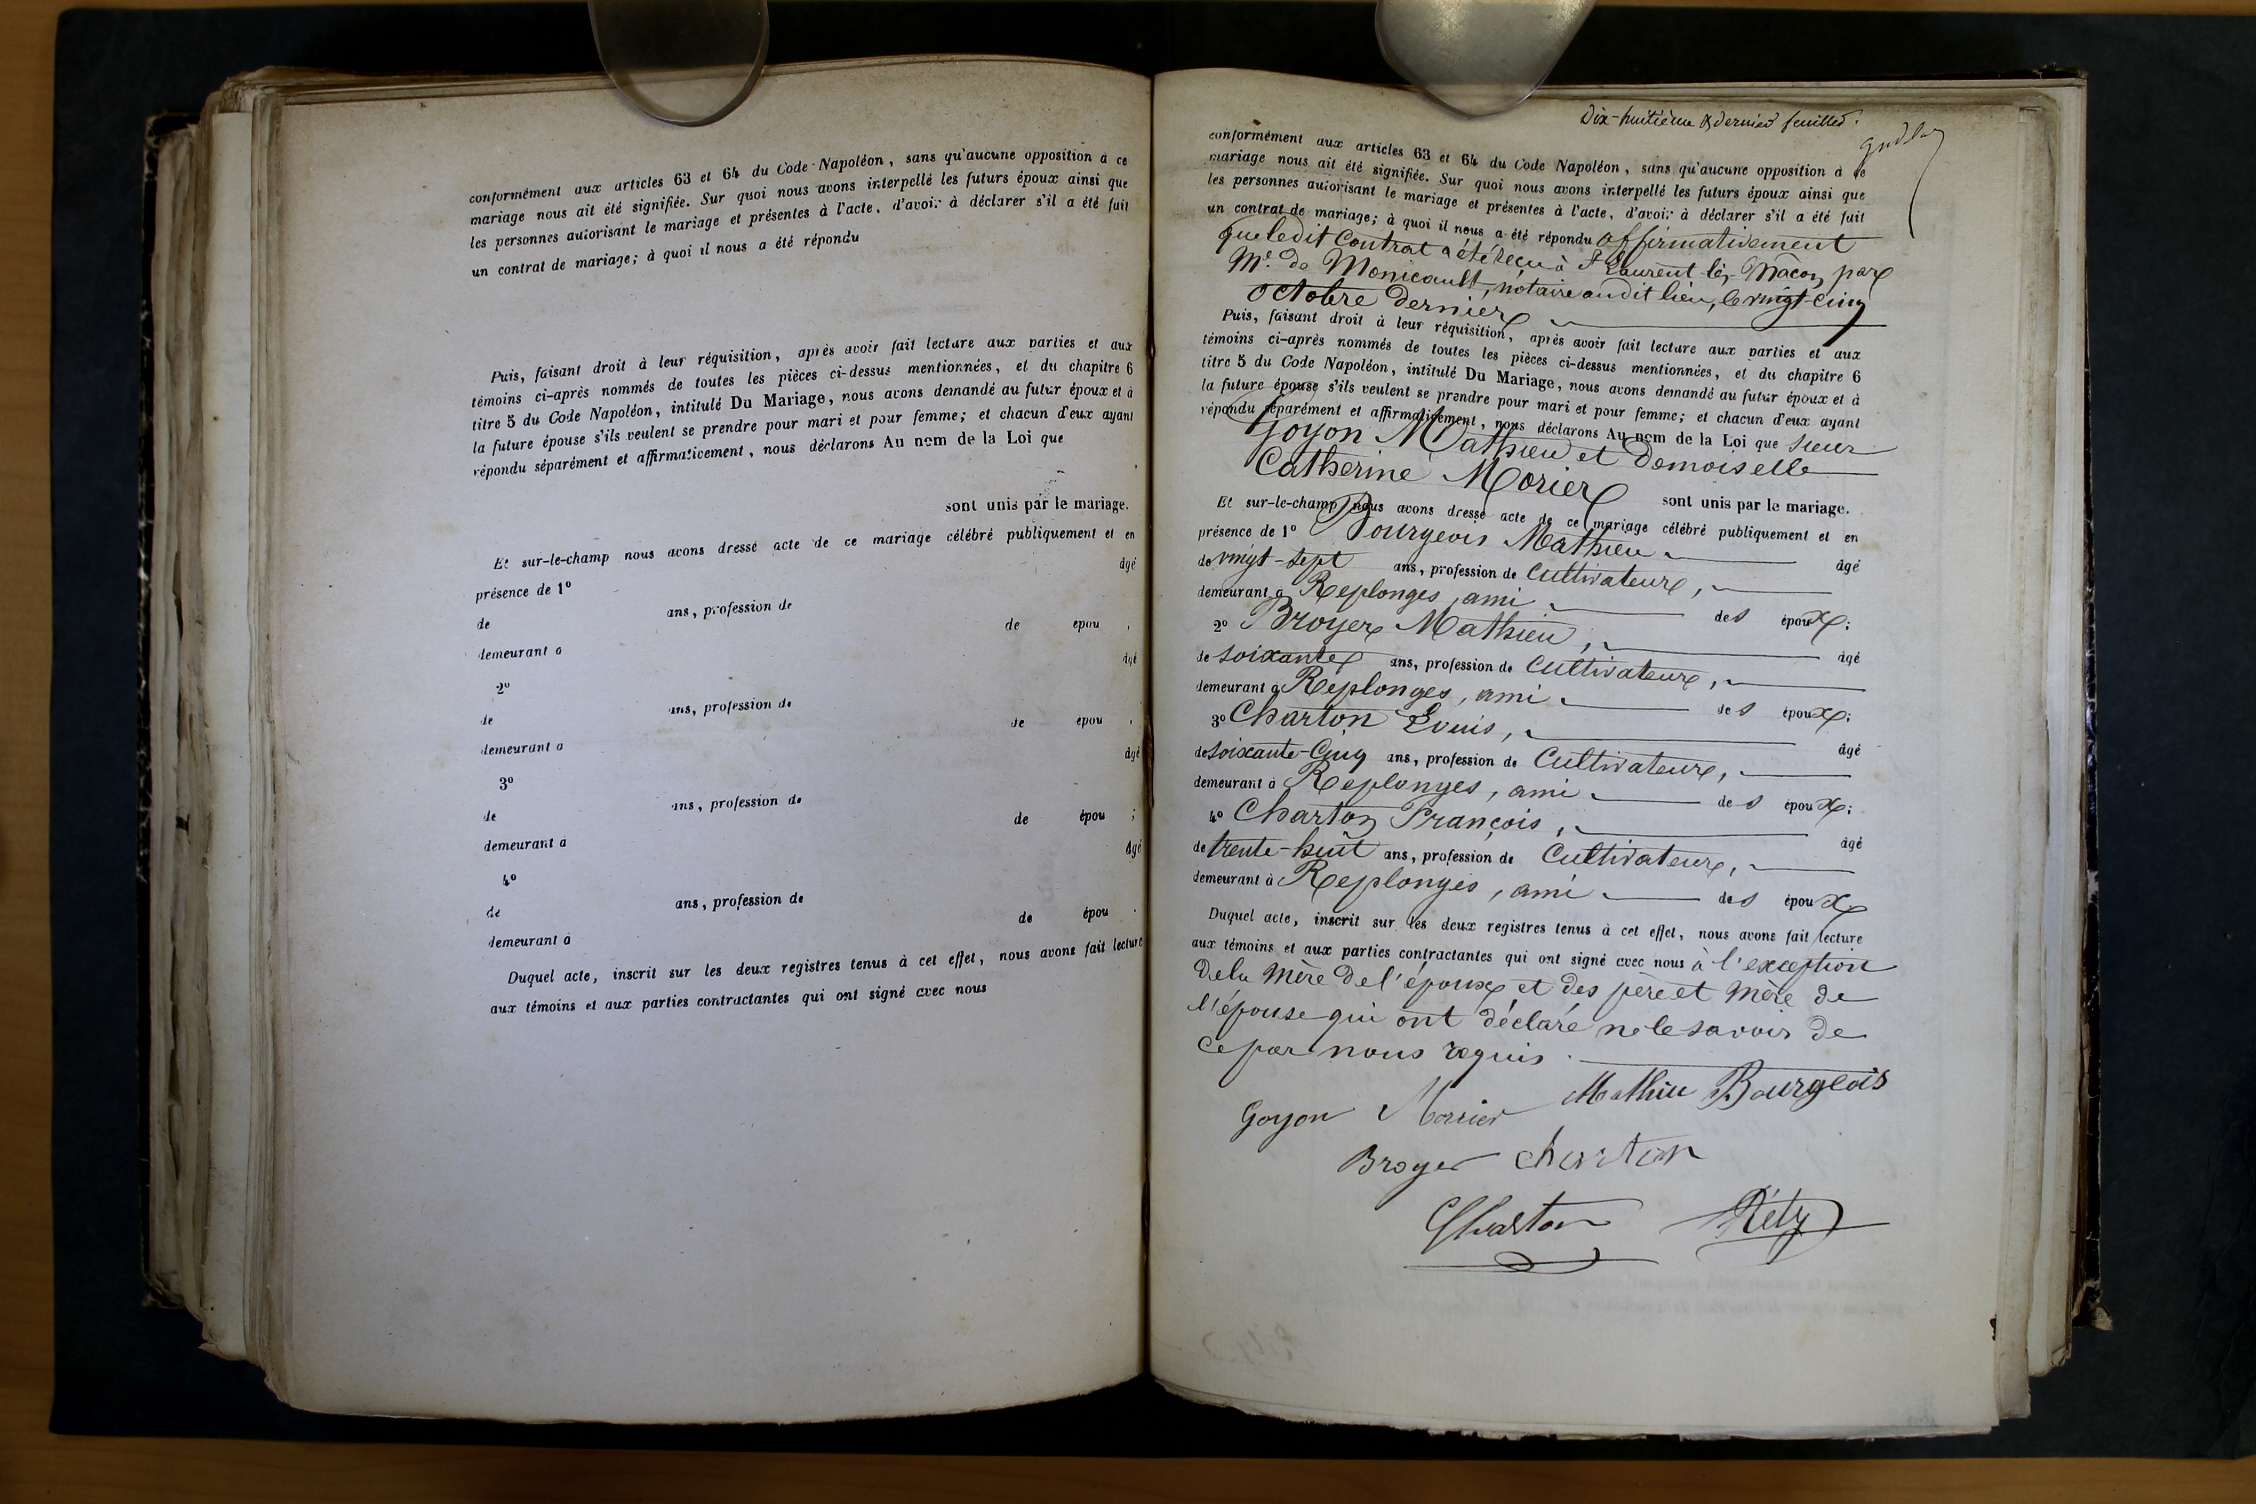 conformément aux articles 63 et 64 du Code Napoléon, sans qu'aucune opposition à ce
mariage nous ait été signifiée. Sur quoi nous avons interpellé les futurs époux ainsi que
les personnes autorisant le mariage et présentes à l'acte, d'avoir à déclarer s'il a été fait
un contrat de mariage; à quoi il nous a été répondu
Puis, faisant droit à leur réquisition, après avoir fait lecture aux parties et aux
témoins ci-après nommés de toutes les pièces ci-dessus mentionnées, et du chapitre 6
titre 5 du Code Napoléon, intitulé Du Mariage, nous avons demandé au futur époux et à
la future épouse s'ils veulent se prendre pour mari et pour femme; et chacun d'eux ayant
répondu séparément et affirmativement, nous déclarons Au nom de la Loi que
sont unis par le mariage.
Et sur-le-champ nous avons dressé acte de ce mariage célébré publiquement et en
présence de 1° âgé
de ans, profession de
demeurant à de épou ,
2° âgé
de ans, profession de
demeurant à de épou ,
3° âgé
de ans, profession de
demeurant à de épou ;
4° âgé
de ans, profession de
demeurant à de épou .
Duquel acte, inscrit sur les deux registres tenus à cet effet, nous avons fait lecture
aux témoins et aux parties contractantes qui ont signé avec nous
Dix-huitième & dernier feuillet.
conformément aux articles 63 et 64 du Code Napoléon, sans qu'aucune opposition à ce
mariage nous ait été signifiée. Sur quoi nous avons interpellé les futurs époux ainsi que
les personnes autorisant le mariage et présentes à l'acte, d'avoir à déclarer s'il a été fait
un contrat de mariage; à quoi il nous a été répondu affirmativement
que ledit Contrat a été reçu à St Laurent-lès-Mâcon par
Me. de Monicault, notaire audit lieu, le vingt-cinq
octobre dernier
Puis, faisant droit à leur réquisition, après avoir fait lecture aux parties et aux
témoins ci-après nommés de toutes les pièces ci-dessus mentionnées, et du chapitre 6
titre 5 du Code Napoléon, intitulé Du Mariage, nous avons demandé au futur époux et à
la future épouse s'ils veulent se prendre pour mari et pour femme; et chacun d'eux ayant
répondu séparément et affirmativement, nous déclarons Au nom de la Loi que sieur
Goyon Mathieu et Demoiselle
Catherine Morier sont unis par le mariage.
Et sur-le-champ nous avons dressé acte de ce mariage célébré publiquement et en
présence de 1° Bourgeois Mathieu âgé
de vingt-sept ans, profession de Cultivateur,
demeurant à Replonges, ami des époux;
2° Broyer Mathieu, âgé
de soixante ans, profession de Cultivateur,
demeurant à Replonges, ami des époux;
3° Charton Louis, âgé
de soixante-Cinq ans, profession de Cultivateur,
demeurant à Replonges, ami des époux;
4° Charton François, âgé
de trente-huit ans, profession de Cultivateur,
demeurant à Replonges, ami des époux
Duquel acte, inscrit sur les deux registres tenus à cet effet, nous avons fait lecture
aux témoins et aux parties contractantes qui ont signé avec nous à l'exception
de la Mère de l'époux et des père et Mère de
l'épouse qui ont déclaré ne le savoir de
ce par nous requis.
Goyon Morier Mathieu Bourgeois
Broyer charton
Charton Réty